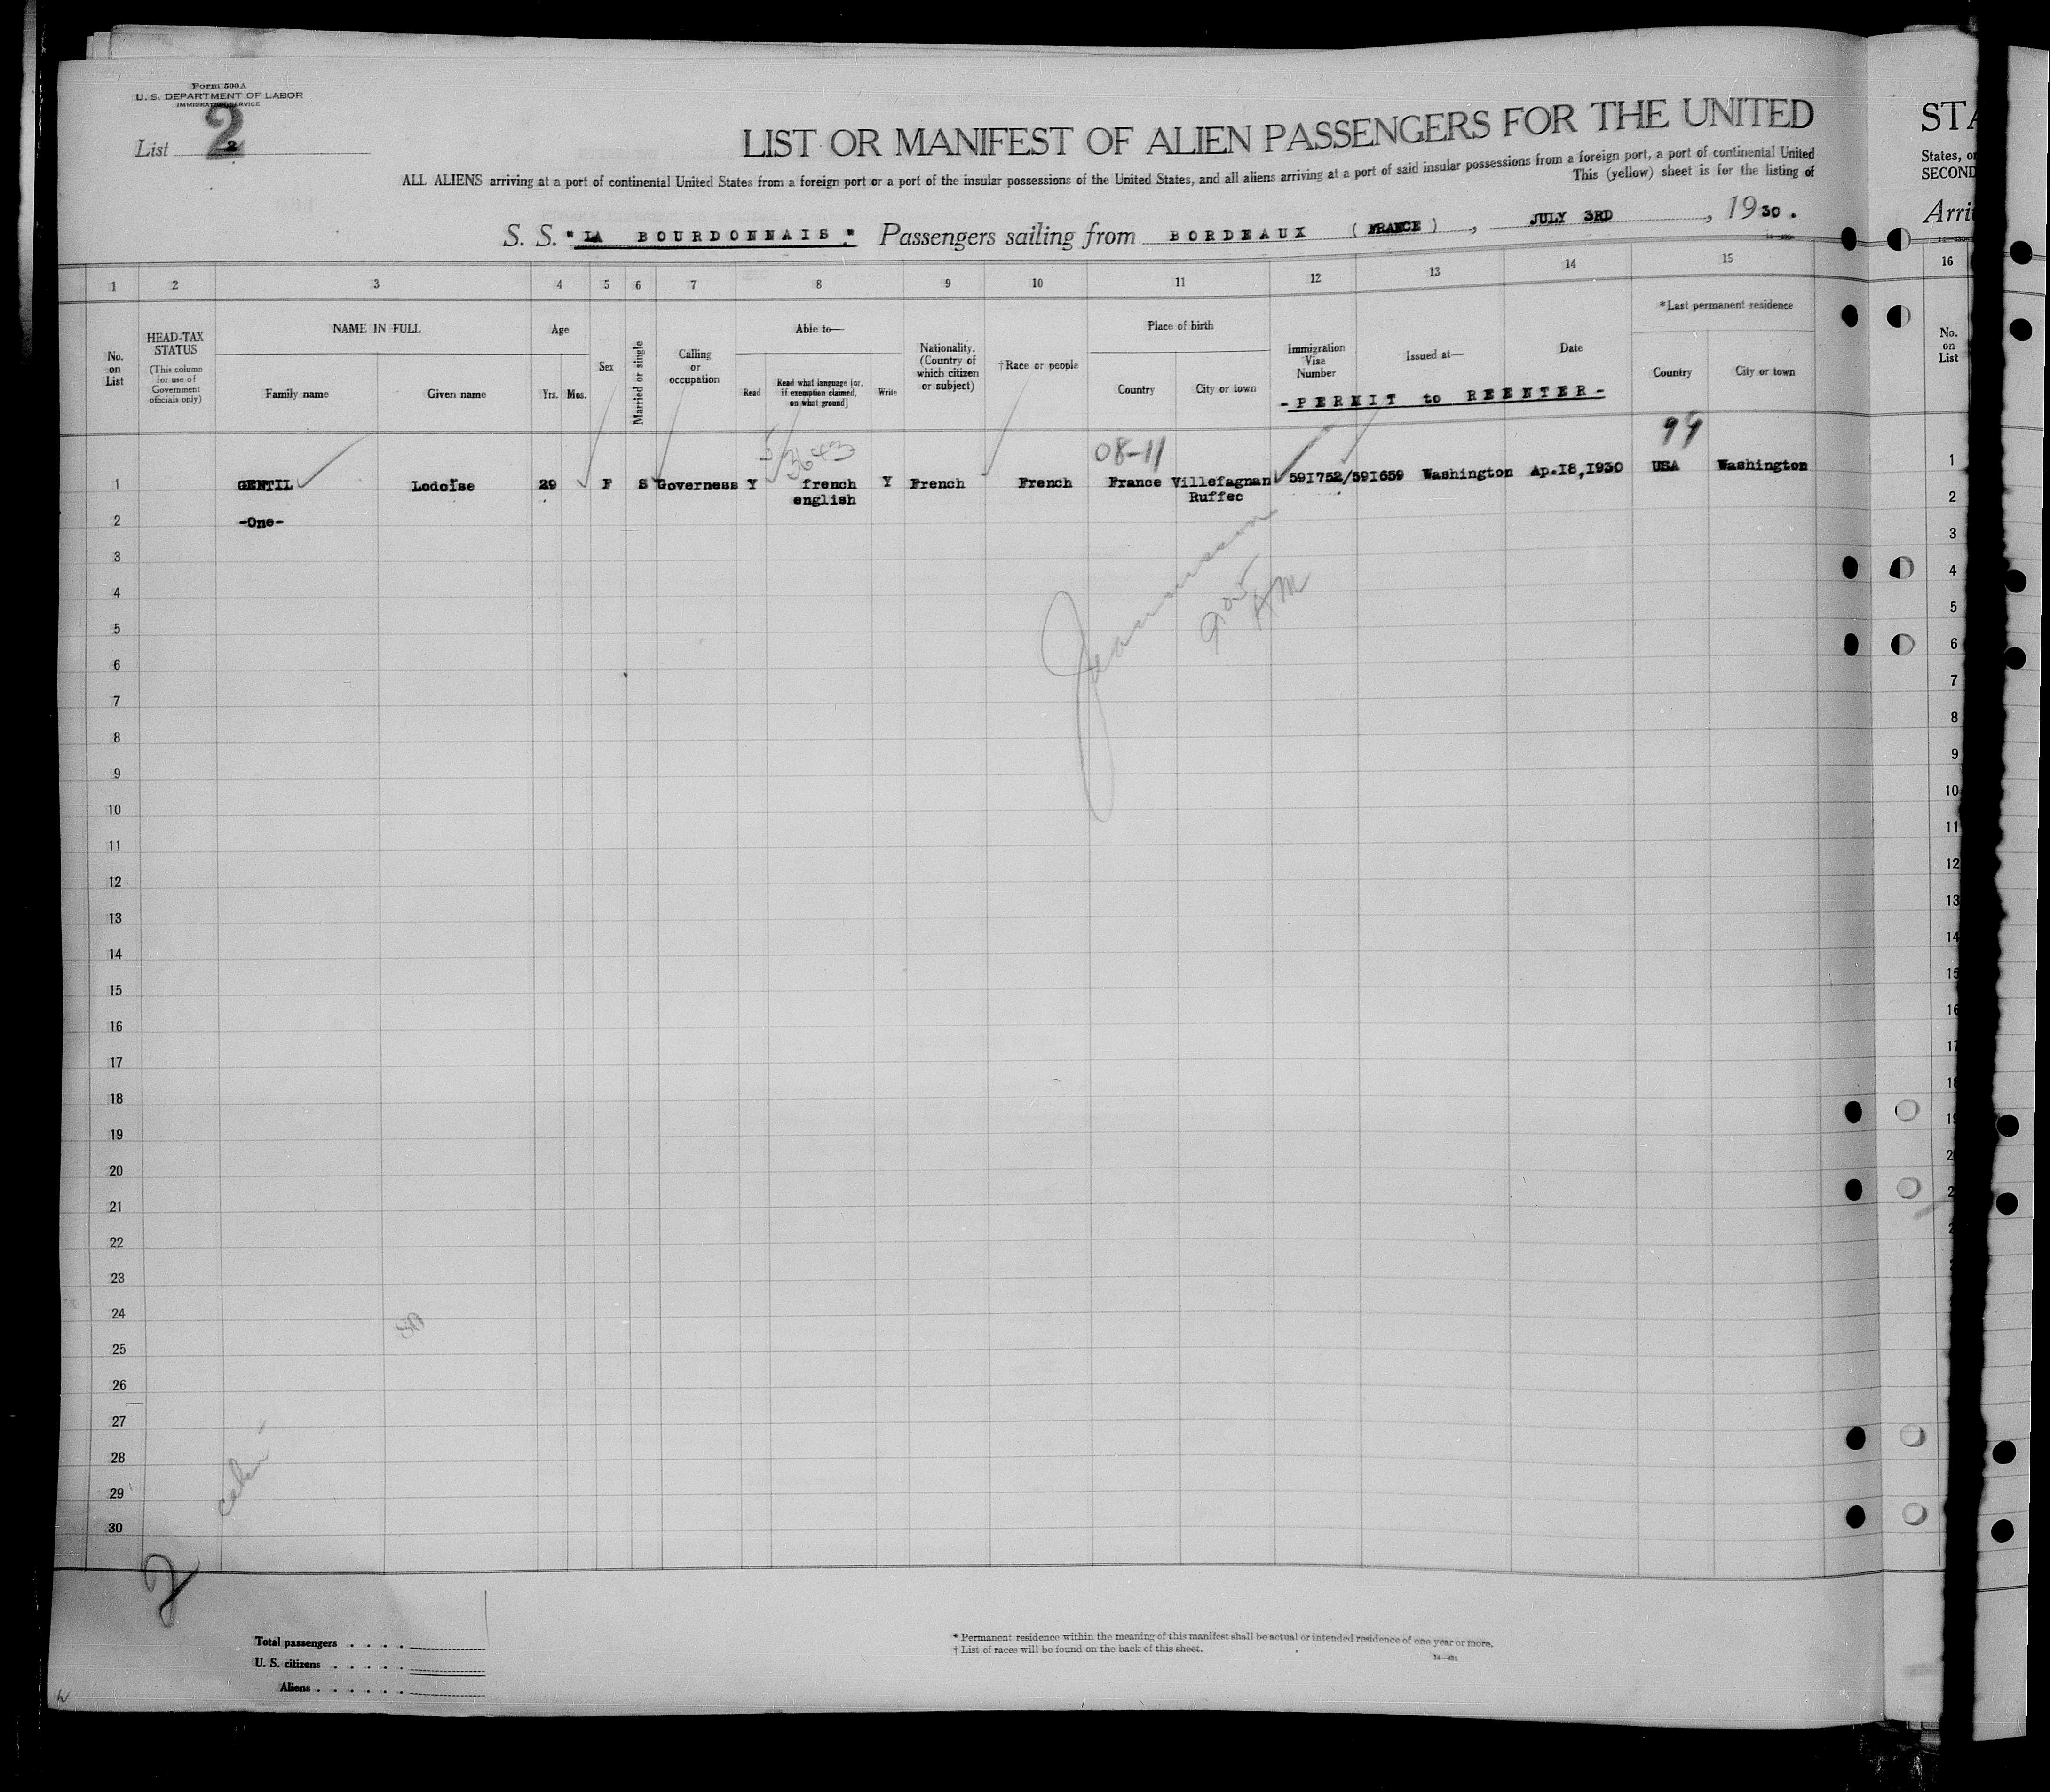 Form 500A
U. S. DEPARTMENT OF LABOR
IMMIGRATION SERVICE
List 2
2
LIST OR MANIFEST OF ALIEN PASSENGERS FOR THE UNITED
ALL ALIENS arriving at a port of continental United States from a foreign port or a port of the insular possessions of the United States, and all aliens arriving at a port of said insular possessions from a foreign port, a port of continental United
This (yellow) sheet is for the listing of
S. S. "LA BOURDONNAIS." Passengers sailing from BORDEAUX (FRANCE), JULY 3RD, 1930.
STA
States, o
SECOND
Arri
1 2 3 4 5 6 7 8 9 10 11 12 13 14 15 16
No. on List
HEAD-TAX STATUS
(This column for use of Government officials only)
NAME IN FULL
Family name Given name
Age
Yrs. Mos.
Sex
Married or single
Calling or occupation
Able to—
Read
Read what language [or, if exemption claimed, on what ground]
Write
Nationality. (Country of which citizen or subject)
†Race or people
Place of birth
Country City or town
Immigration Visa Number
Issued at—
Date
-PERMIT to REENTER-
*Last permanent residence
Country City or town
No. on List
3643 08-11 99
1 GENTIL Lodoïse 29 F S Governess Y french Y French French France Villefagnan 591752/591659 Washington Ap.18,1930 USA Washington 1
english Ruffec 2
2 -One-
3 3
4 4
5 5
6 6
7 7
8 8
9 9
10 10
11 11
12 12
13 13
14 14
15 15
16 16
17 17
18 18
19 19
20
21
22
23
24
25
26
27
28
29
30
905
AM
2
Total passengers . . . .
U. S. citizens . . . . .
Aliens . . . . . .
* Permanent residence within the meaning of this manifest shall be actual or intended residence of one year or more.
† List of races will be found on the back of this sheet.